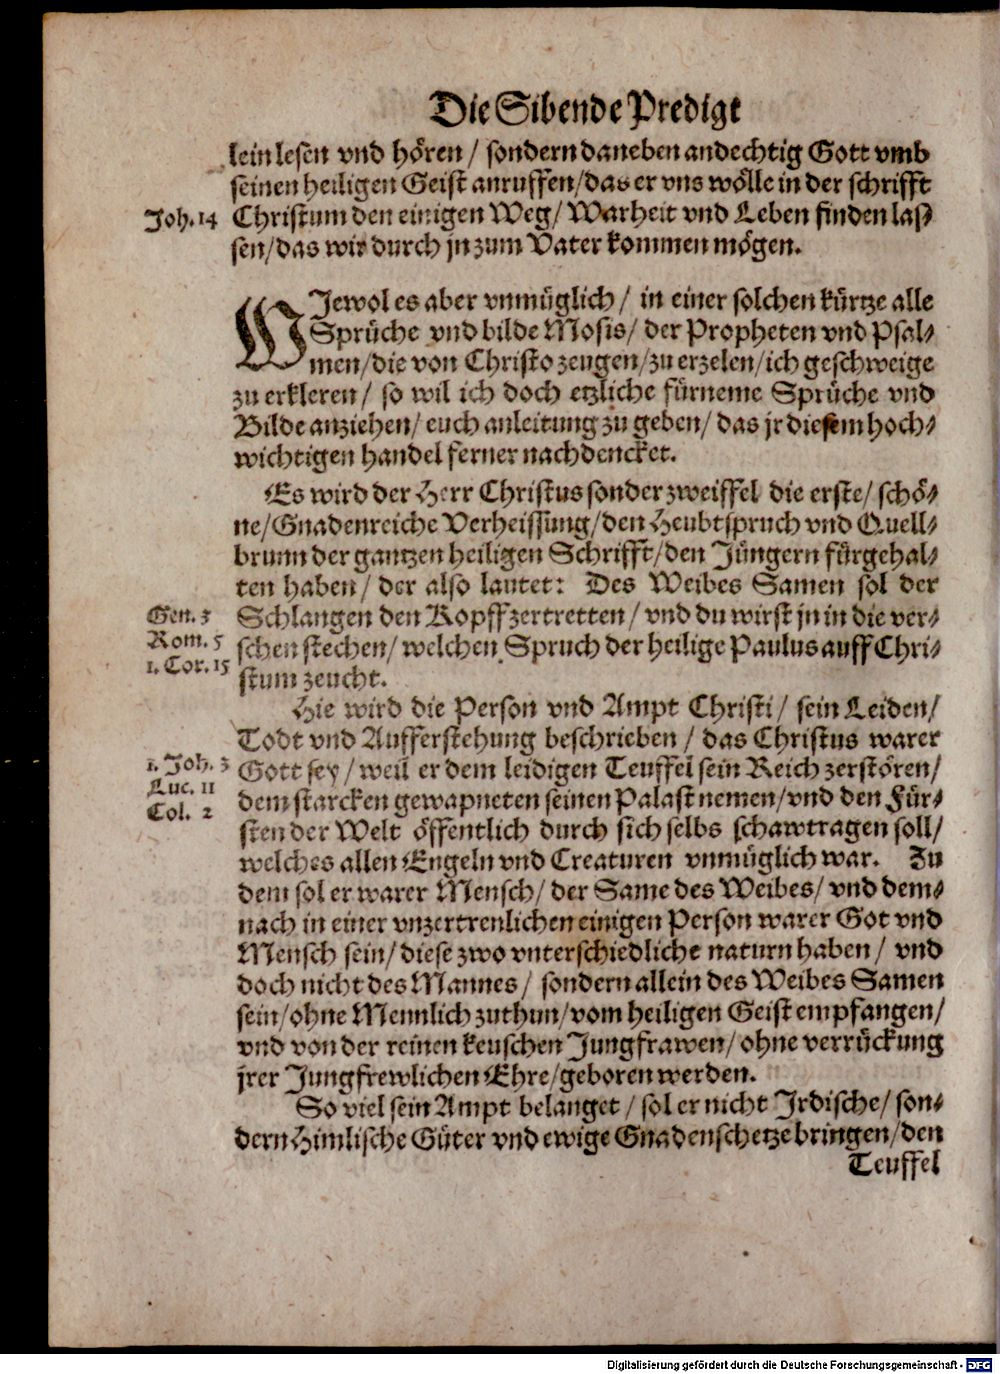 Die Sibende Predigt
lein lesen vnd hören / sondern daneben andechtig Gott vmb
seinen heiligen Geist anruffen/das er vns wölle in der schrifft
Joh. 14 Christum den einigen Weg/ Warheit vnd Leben finden las⸗
sen/das wir durch jn zum Vater kommen mögen.
WJewol es aber vnmüglich / in einer solchen kürtze alle
Sprüche vnd bilde Mosis/ der Propheten vnd Psal⸗
men/die von Christo zeugen/zu erzelen/ich geschweige
zu erkleren/ so wil ich doch etzliche fürneme Sprüche vnd
Bilde anziehen/ euch anleitung zu geben/ das jr diesem hoch⸗
wichtigen handel ferner nachdencket.
Es wird der Herr Christus sonder zweiffel die erste/ schö⸗
ne/Gnadenreiche Verheissung/den Heubtspruch vnd Quell⸗
brunn der gantzen heiligen Schrifft/den Jüngern fürgehal⸗
ten haben/ der also lautet: Des Weibes Samen sol der
Gen. 3 Schlangen den Kopff zertretten/ vnd du wirst jn in die ver⸗
Rom. 5 schen stechen/ welchen Spruch der heilige Paulus auff Chri⸗
1. Cor. 15 stum zeucht.
Hie wird die Person vnd Ampt Christi/ sein Leiden/
Todt vnd Aufferstehung beschrieben / das Christus warer
1. Joh. 3 Gott sey/ weil er dem leidigen Teuffel sein Reich zerstören/
Luc. 11 dem starcken gewapneten seinen Palast nemen/vnd den Für⸗
Col. 2 sten der Welt öffentlich durch sich selbs schawtragen soll/
welches allen Engeln vnd Creaturen vnmüglich war. Zu
dem sol er warer Mensch/ der Same des Weibes/ vnd dem⸗
nach in einer vnzertrenlichen einigen Person warer Got vnd
Mensch sein/ diese zwo vnterschiedliche naturn haben/ vnd
doch nicht des Mannes/ sondern allein des Weibes Samen
sein/ohne Mennlich zuthun/vom heiligen Geist empfangen/
vnd von der reinen keuschen Jungfrawen/ohne verrückung
jrer Jungfrewlichen Ehre/geboren werden.
So viel sein Ampt belanget / sol er nicht Jrdische/ son⸗
dern Himlische Güter vnd ewige Gnadenschetze bringen/den
Teuffel
Digitalisierung gefördert durch die Deutsche Forschungsgemeinschaft - DFG